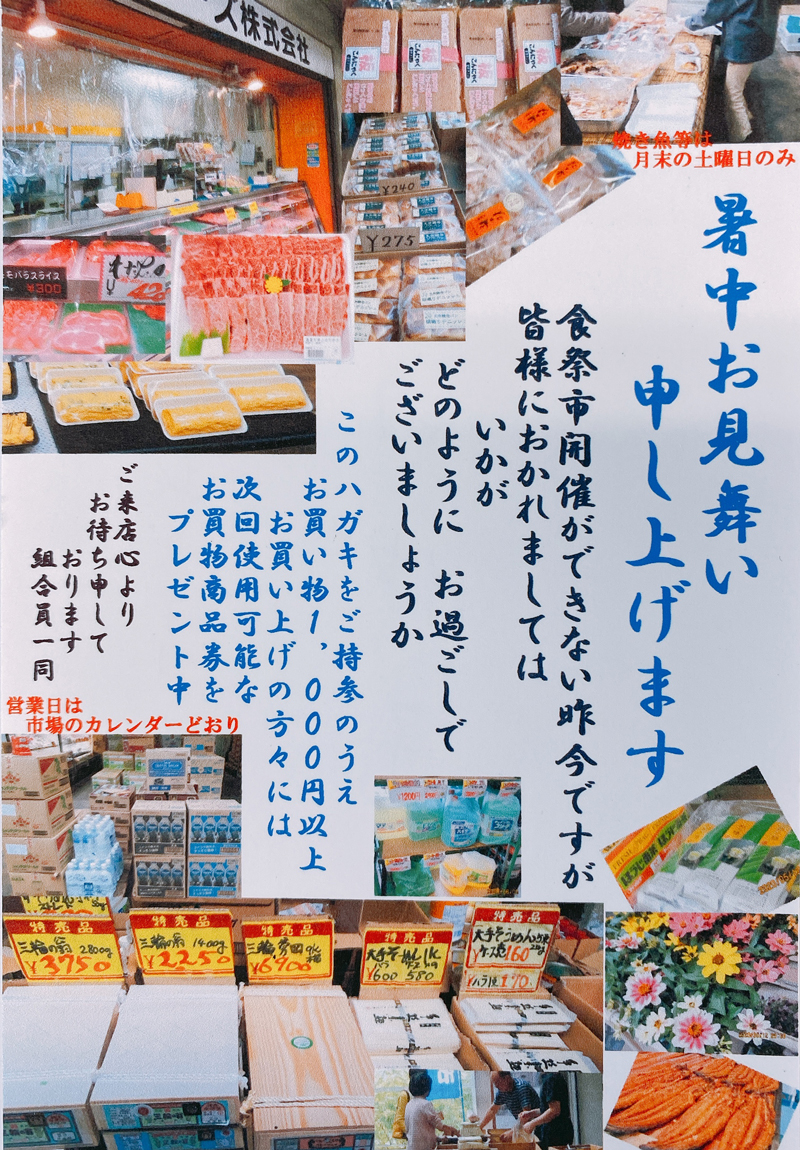 ズ株式会社
焼き魚等は
月末の土曜日のみ
暑中お見舞い
申し上げます
食祭市開催ができない昨今ですが
皆様におかれましては
いかが
どのように お過ごしで
ございましょうか
このハガキをご持参のうえ
お買い物1,000円以上
お買い上げの方々には
次回使用可能な
お買物商品券を
プレゼント中
ご来店心より
お待ち申して
おります
組合員一同
営業日は
市場のカレンダーどおり
¥240
¥275
モモバラスライス
¥300
特売品
三輪の糸 2800g
¥3750
特売品
三輪の糸 1400g
¥2250
特売品
特売品
¥600 580
特売品
大手そうめん
160
バラ売 170